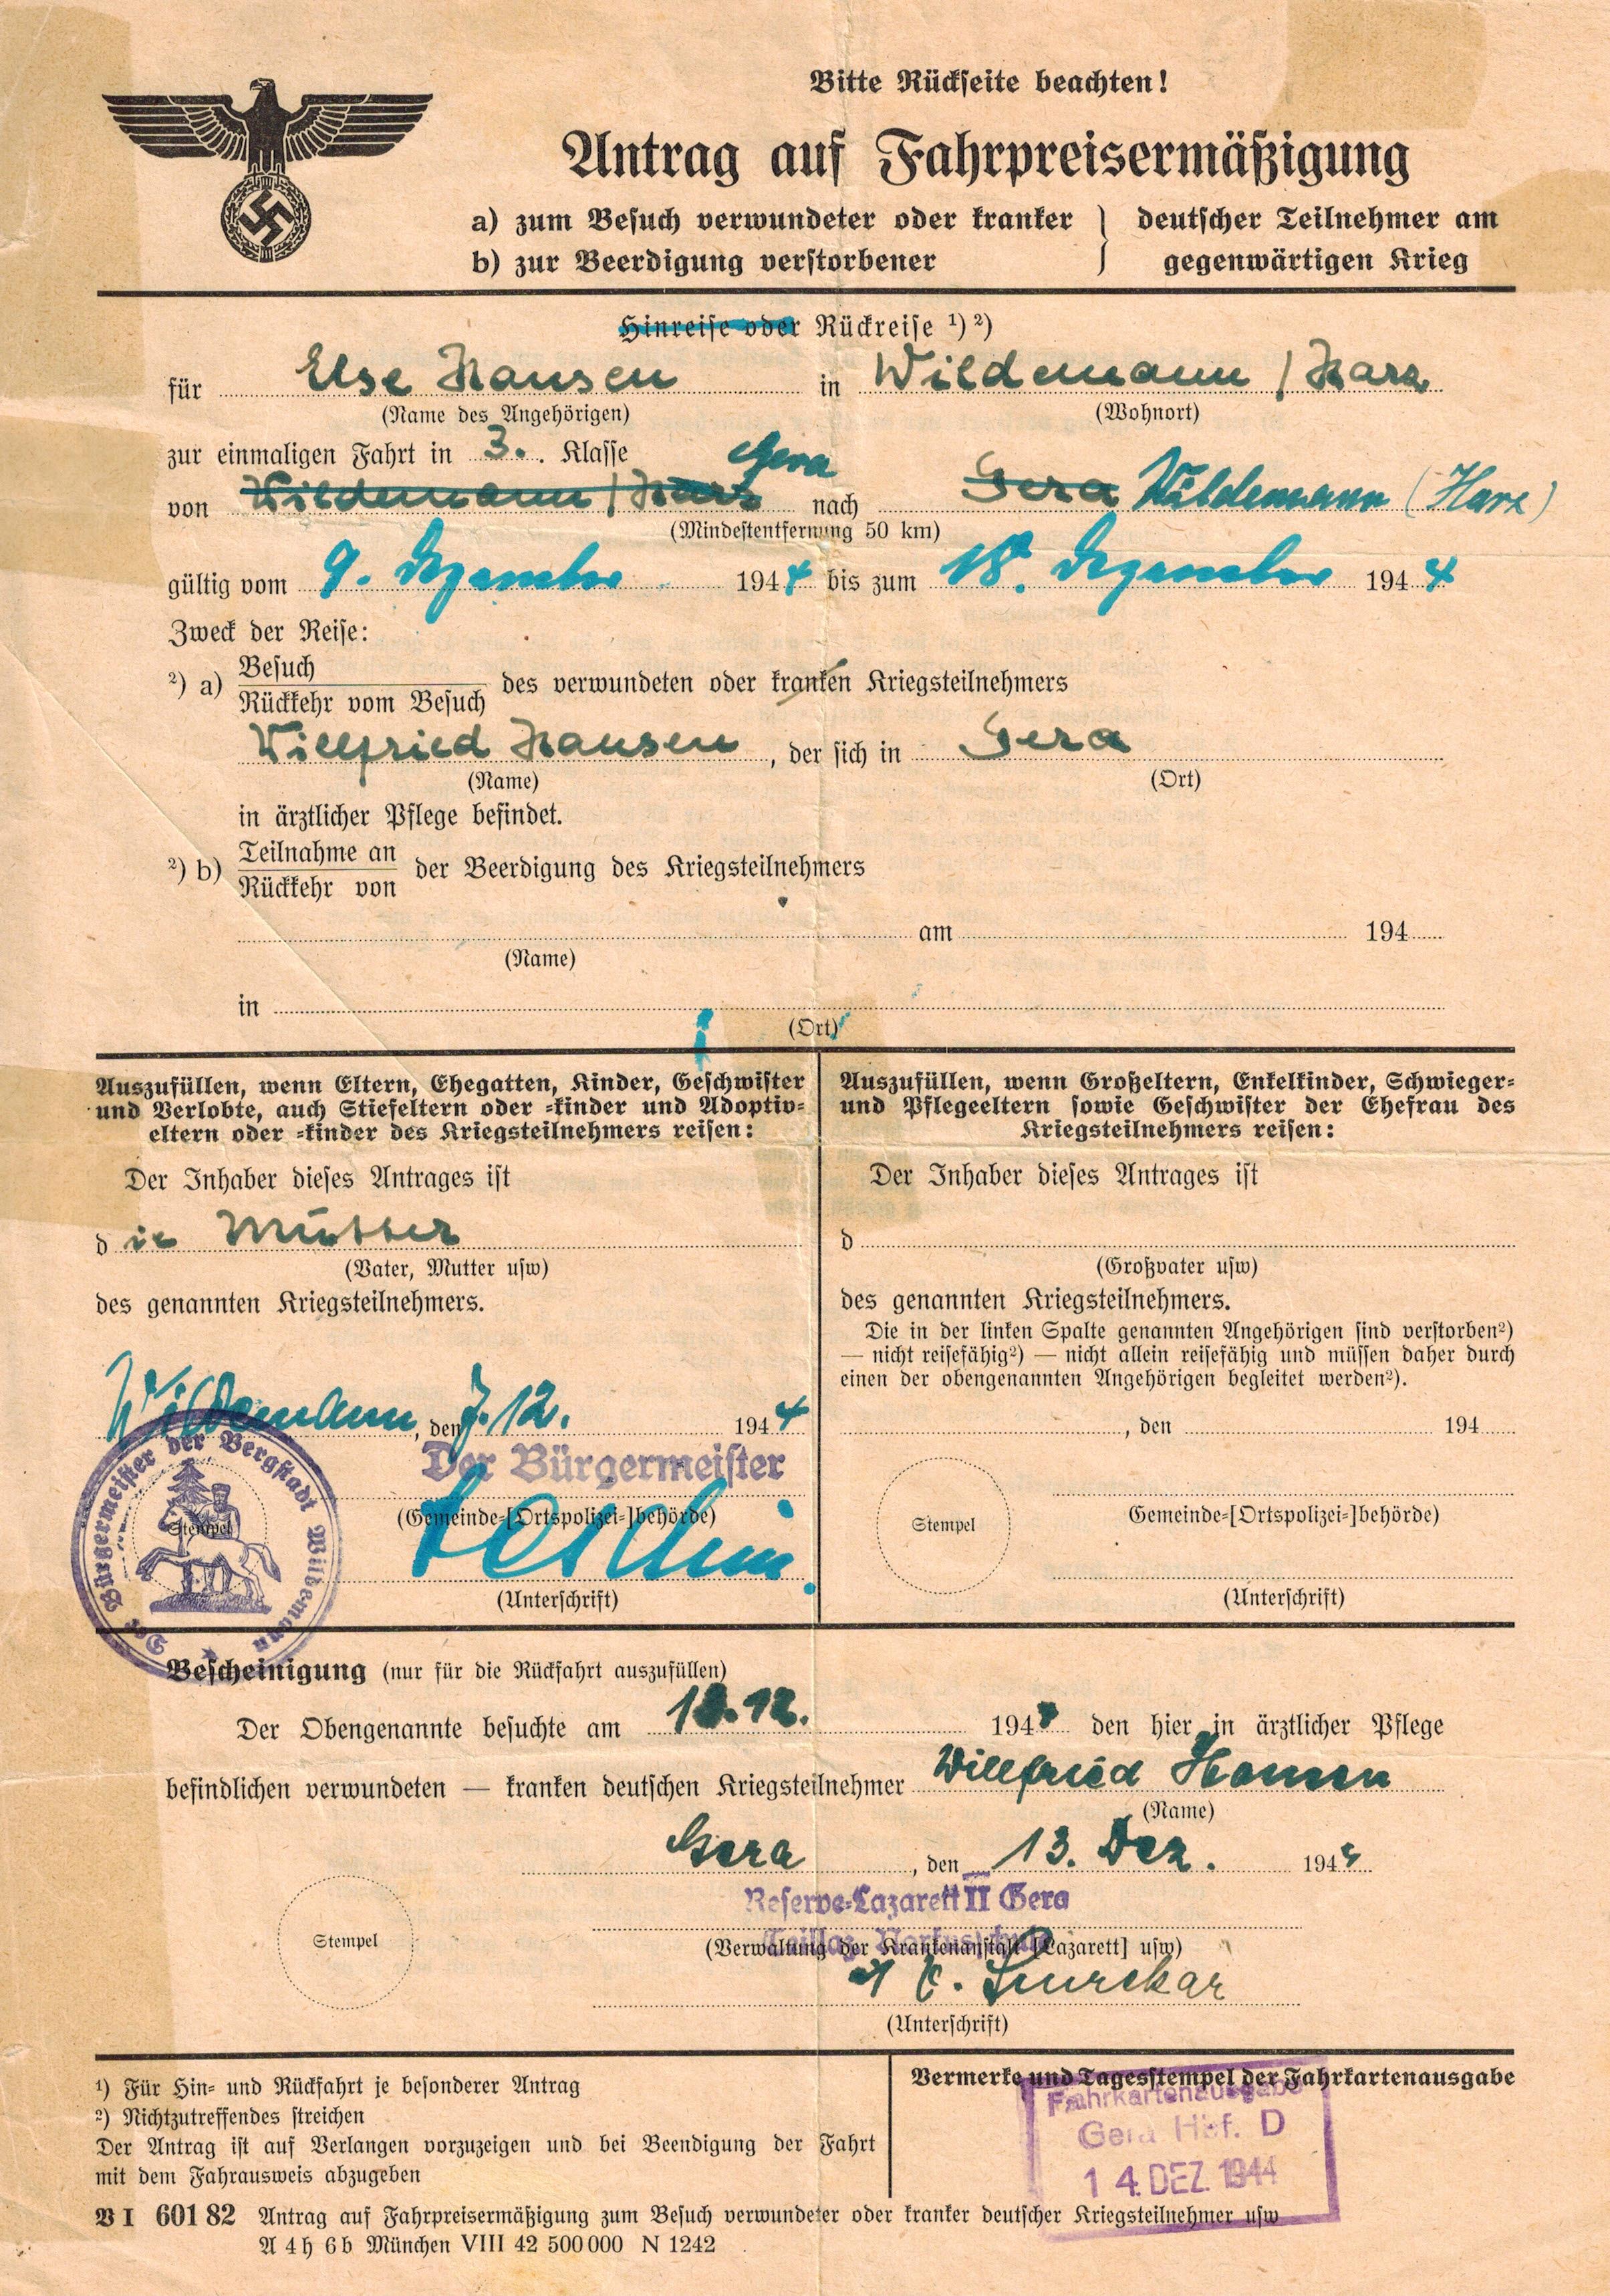 Bitte Rückseite beachten!
Antrag auf Fahrpreisermäßigung
a) zum Besuch verwundeter oder kranker } deutscher Teilnehmer am
b) zur Beerdigung verstorbener } gegenwärtigen Krieg
Hinreise oder Rückreise ¹) ²)
für Else Hansen in Wildemann / Harz
(Name des Angehörigen) (Wohnort)
zur einmaligen Fahrt in 3. Klasse
Gera
von Wildemann / Harz nach Gera Wildemann (Harz)
(Mindestentfernung 50 km)
gültig vom 9. Dezember 1944 bis zum 18. Dezember 1944
Zweck der Reise:
²) a) Besuch
Rückkehr vom Besuch des verwundeten oder kranken Kriegsteilnehmers
Willfried Hansen, der sich in Gera
(Name) (Ort)
in ärztlicher Pflege befindet.
²) b) Teilnahme an
Rückkehr von der Beerdigung des Kriegsteilnehmers
am 194
(Name)
in
(Ort)
Auszufüllen, wenn Eltern, Ehegatten, Kinder, Geschwister
und Verlobte, auch Stiefeltern oder -kinder und Adoptiv-
eltern oder -kinder des Kriegsteilnehmers reisen:
Der Inhaber dieses Antrages ist
die Mutter
(Vater, Mutter usw)
des genannten Kriegsteilnehmers.
Wildemann, den 7.12. 1944
Der Bürgermeister
(Gemeinde-[Ortspolizei-]behörde)
(Unterschrift)
Stempel
Der Bürgermeister der Bergstadt Wildemann
Auszufüllen, wenn Großeltern, Enkelkinder, Schwieger-
und Pflegeeltern sowie Geschwister der Ehefrau des
Kriegsteilnehmers reisen:
Der Inhaber dieses Antrages ist
d
(Großvater usw)
des genannten Kriegsteilnehmers.
Die in der linken Spalte genannten Angehörigen sind verstorben²)
— nicht reisefähig²) — nicht allein reisefähig und müssen daher durch
einen der obengenannten Angehörigen begleitet werden²).
, den 194
Stempel
Gemeinde-[Ortspolizei-]behörde)
(Unterschrift)
Bescheinigung (nur für die Rückfahrt auszufüllen)
Der Obengenannte besuchte am 12. 194 den hier in ärztlicher Pflege
befindlichen verwundeten — kranken deutschen Kriegsteilnehmer Willfried Hansen
(Name)
Gera, den 13. Dez. 1944
Reserve-Lazarett II Gera
Stempel
(Verwaltung der Krankenanstalt [Lazarett] usw)
(Unterschrift)
¹) Für Hin- und Rückfahrt je besonderer Antrag
²) Nichtzutreffendes streichen
Der Antrag ist auf Verlangen vorzuzeigen und bei Beendigung der Fahrt
mit dem Fahrausweis abzugeben
Vermerke und Tagesstempel der Fahrkartenausgabe
Fahrkartenausgabe
Gera Hbf. D
14. DEZ. 1944
V I 601 82 Antrag auf Fahrpreisermäßigung zum Besuch verwundeter oder kranker deutscher Kriegsteilnehmer usw
A 4 h 6 b München VIII 42 500000 N 1242